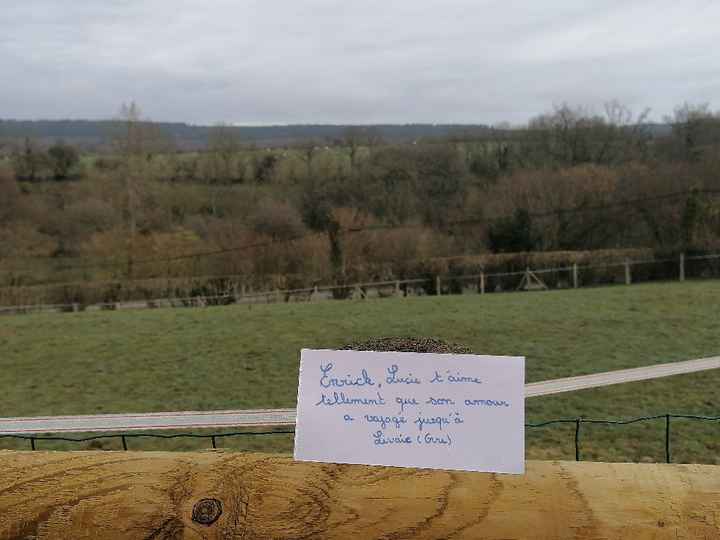 Enrick, Lucie t'aime
tellement que son amour
a voyagé jusqu'à
Livaie (Orne)